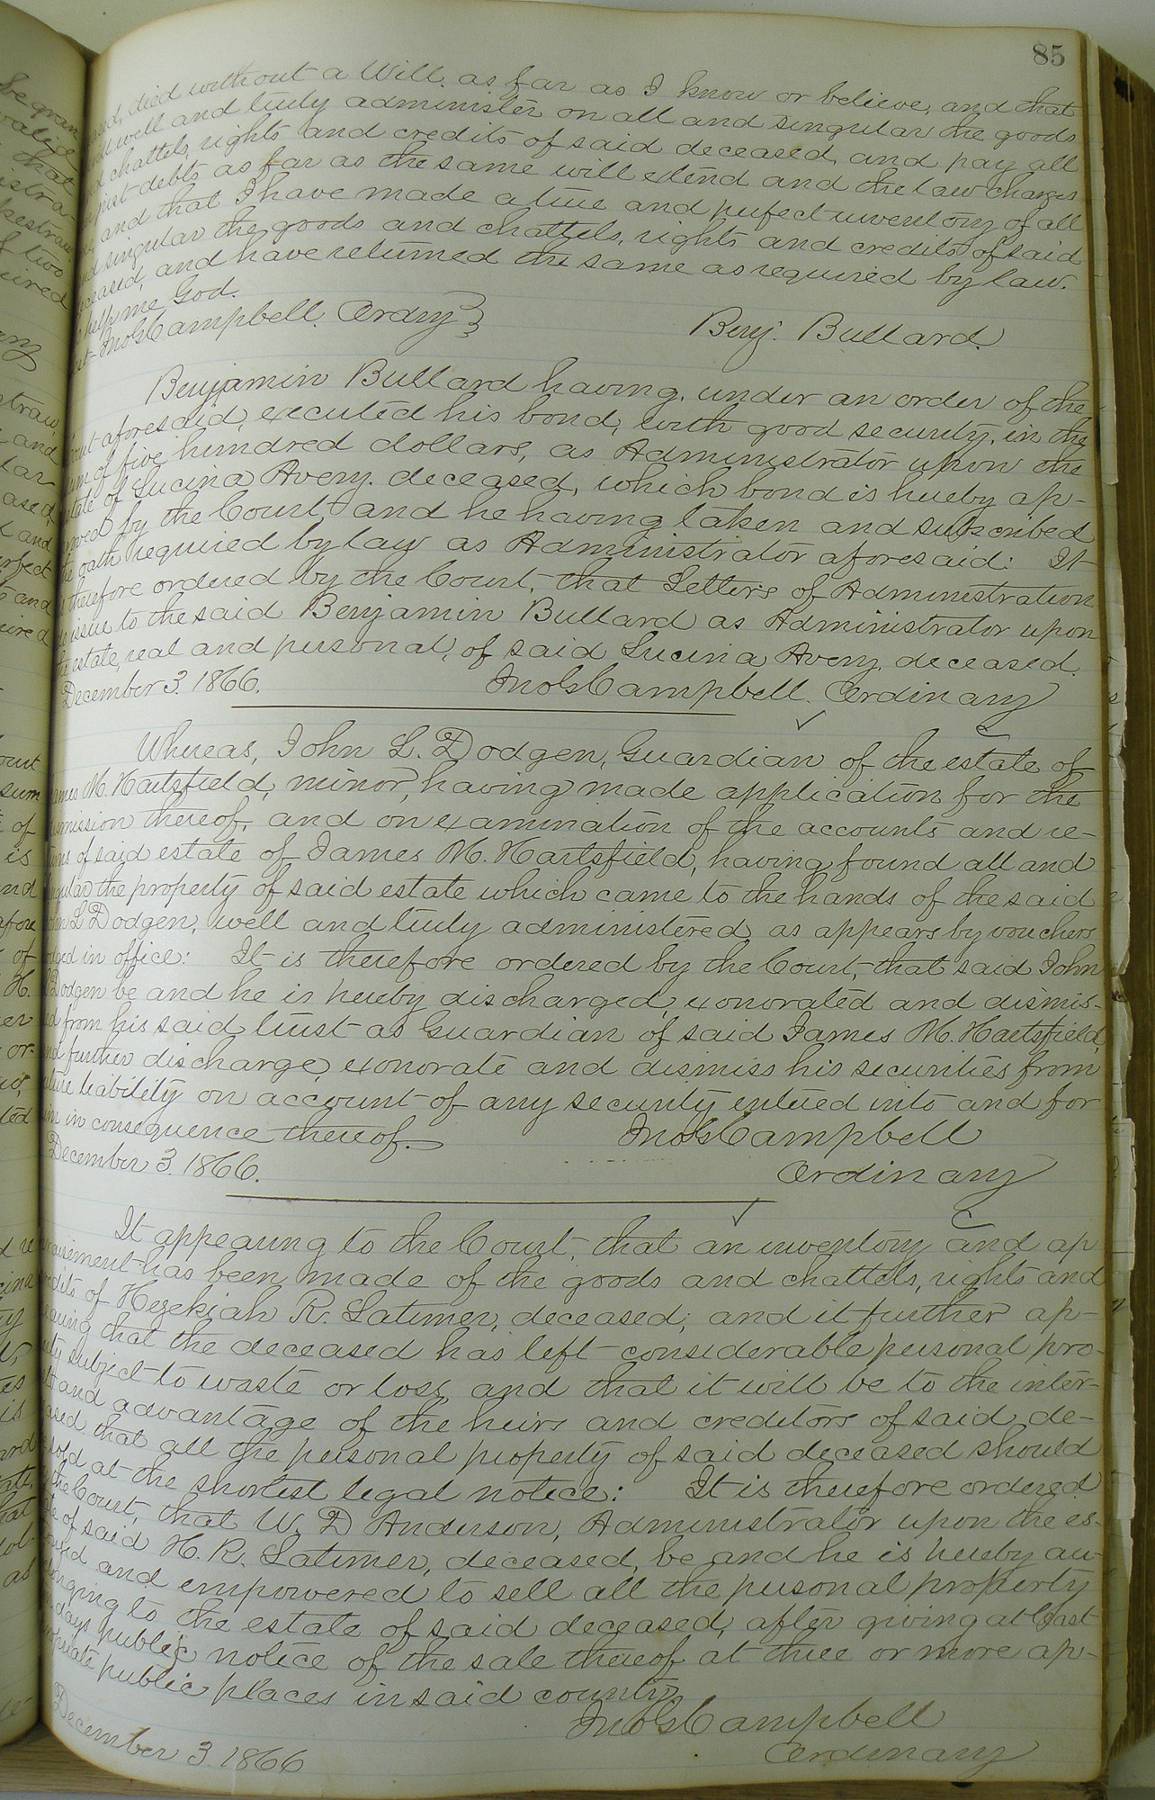 85
died without a Will as far as I know or believe, and that
well and truly administer on all and singular the goods
chattels, rights and credits of said deceased, and pay all
just debts as far as the same will extend and the law charges
and that I have made a true and perfect inventory of all
singular the goods and chattels, rights and credits of said
deceased, and have returned the same as required by law.
help me God.
Campbell. Ordry Benj. Bullard.
Benjamin Bullard having, under an order of the
aforesaid, executed his bond, with good security, in the
sum of five hundred dollars, as Administrator upon the
estate of Lucina Avery, deceased, which bond is hereby ap-
proved by the Court, and he having taken and subscribed
the oath required by law as Administrator aforesaid: It
therefore ordered by the Court, that Letters of Administration
issue to the said Benjamin Bullard as Administrator upon
the estate, real and personal, of said Lucina Avery, deceased.
December 3. 1866. Jno G Campbell. Ordinary
Whereas, John L. Dodgen, Guardian of the estate of
James M. Hartsfield, minor, having made application for the
thereof, and on examination of the accounts and re-
of said estate of James M. Hartsfield, having found all and
the property of said estate which came to the hands of the said
L Dodgen, well and truly administered as appears by vouchers
in office: It is therefore ordered by the Court, that said John
Dodgen be and he is hereby discharged, exonorated and dismis-
from his said trust as Guardian of said James M. Hartsfield,
further discharge, exonorate and dismiss his securities from
liability on account of any security entered into and for
in consequence thereof. Jno G Campbell
December 3. 1866. Ordinary
It appearing to the Court, that an inventory and ap
has been made of the goods and chattels, rights and
credits of Hezekiah R. Latimer, deceased; and it further ap-
that the deceased has left considerable personal pro-
subject to waste or loss, and that it will be to the inter-
and advantage of the heirs and creditors of said de-
that all the personal property of said deceased should
sold at the shortest legal notice: It is therefore ordered
the Court, that W. D Anderson, Administrator upon the es-
of said H. R. Latimer, deceased, be and he is hereby au-
and empowered to sell all the personal property
to the estate of said deceased, after giving at least
days public notice of the sale thereof at three or more ap-
public places in said county.
Jno G Campbell
December 3. 1866 Ordinary